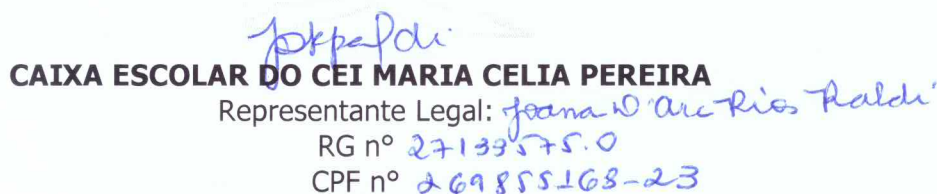 CAIXA ESCOLAR DO CEI MARIA CELIA PEREIRA
Representante Legal: Joana D'arc Rios Raldi
RG nº 27139575.0
CPF nº 269855168-23